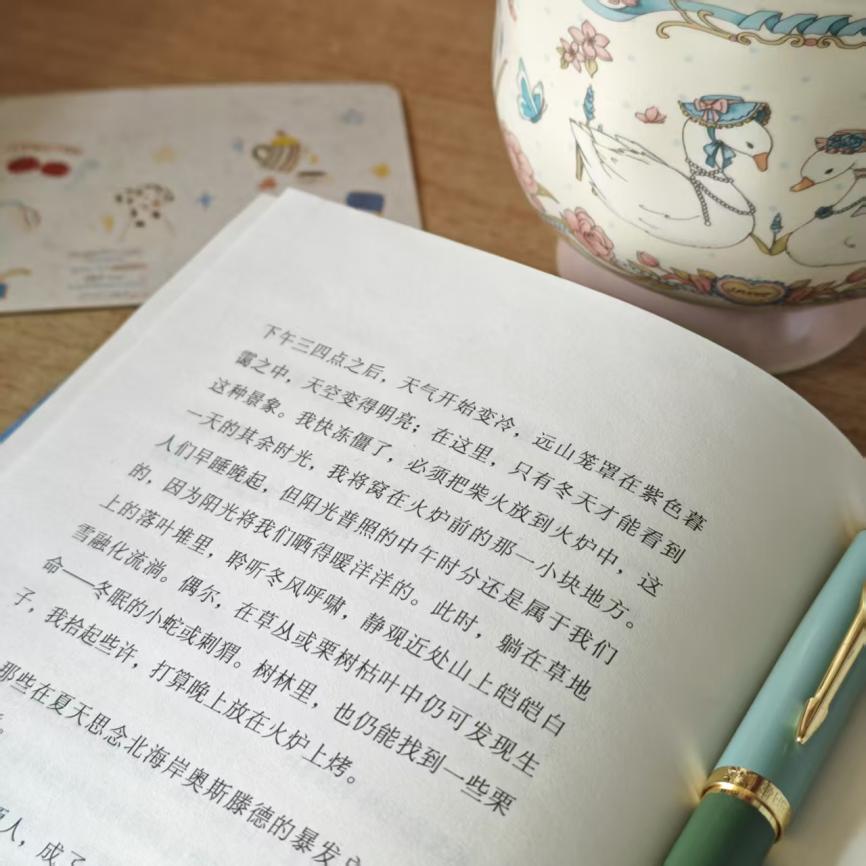 下午三四点之后，天气开始变冷，远山笼罩在紫色暮
霭之中，天空变得明亮；在这里，只有冬天才能看到
这种景象。我快冻僵了，必须把柴火放到火炉中，这
一天的其余时光，我将窝在火炉前的那一小块地方。
人们早睡晚起，但阳光普照的中午时分还是属于我们
的，因为阳光将我们晒得暖洋洋的。此时，躺在草地
上的落叶堆里，聆听冬风呼啸，静观近处山上皑皑白
雪融化流淌。偶尔，在草丛或栗树枯叶中仍可发现生
命——冬眠的小蛇或刺猬。树林里，也仍能找到一些栗
子，我拾起些许，打算晚上放在火炉上烤。
那些在夏天思念北海岸奥斯滕德的暴发
人，成了